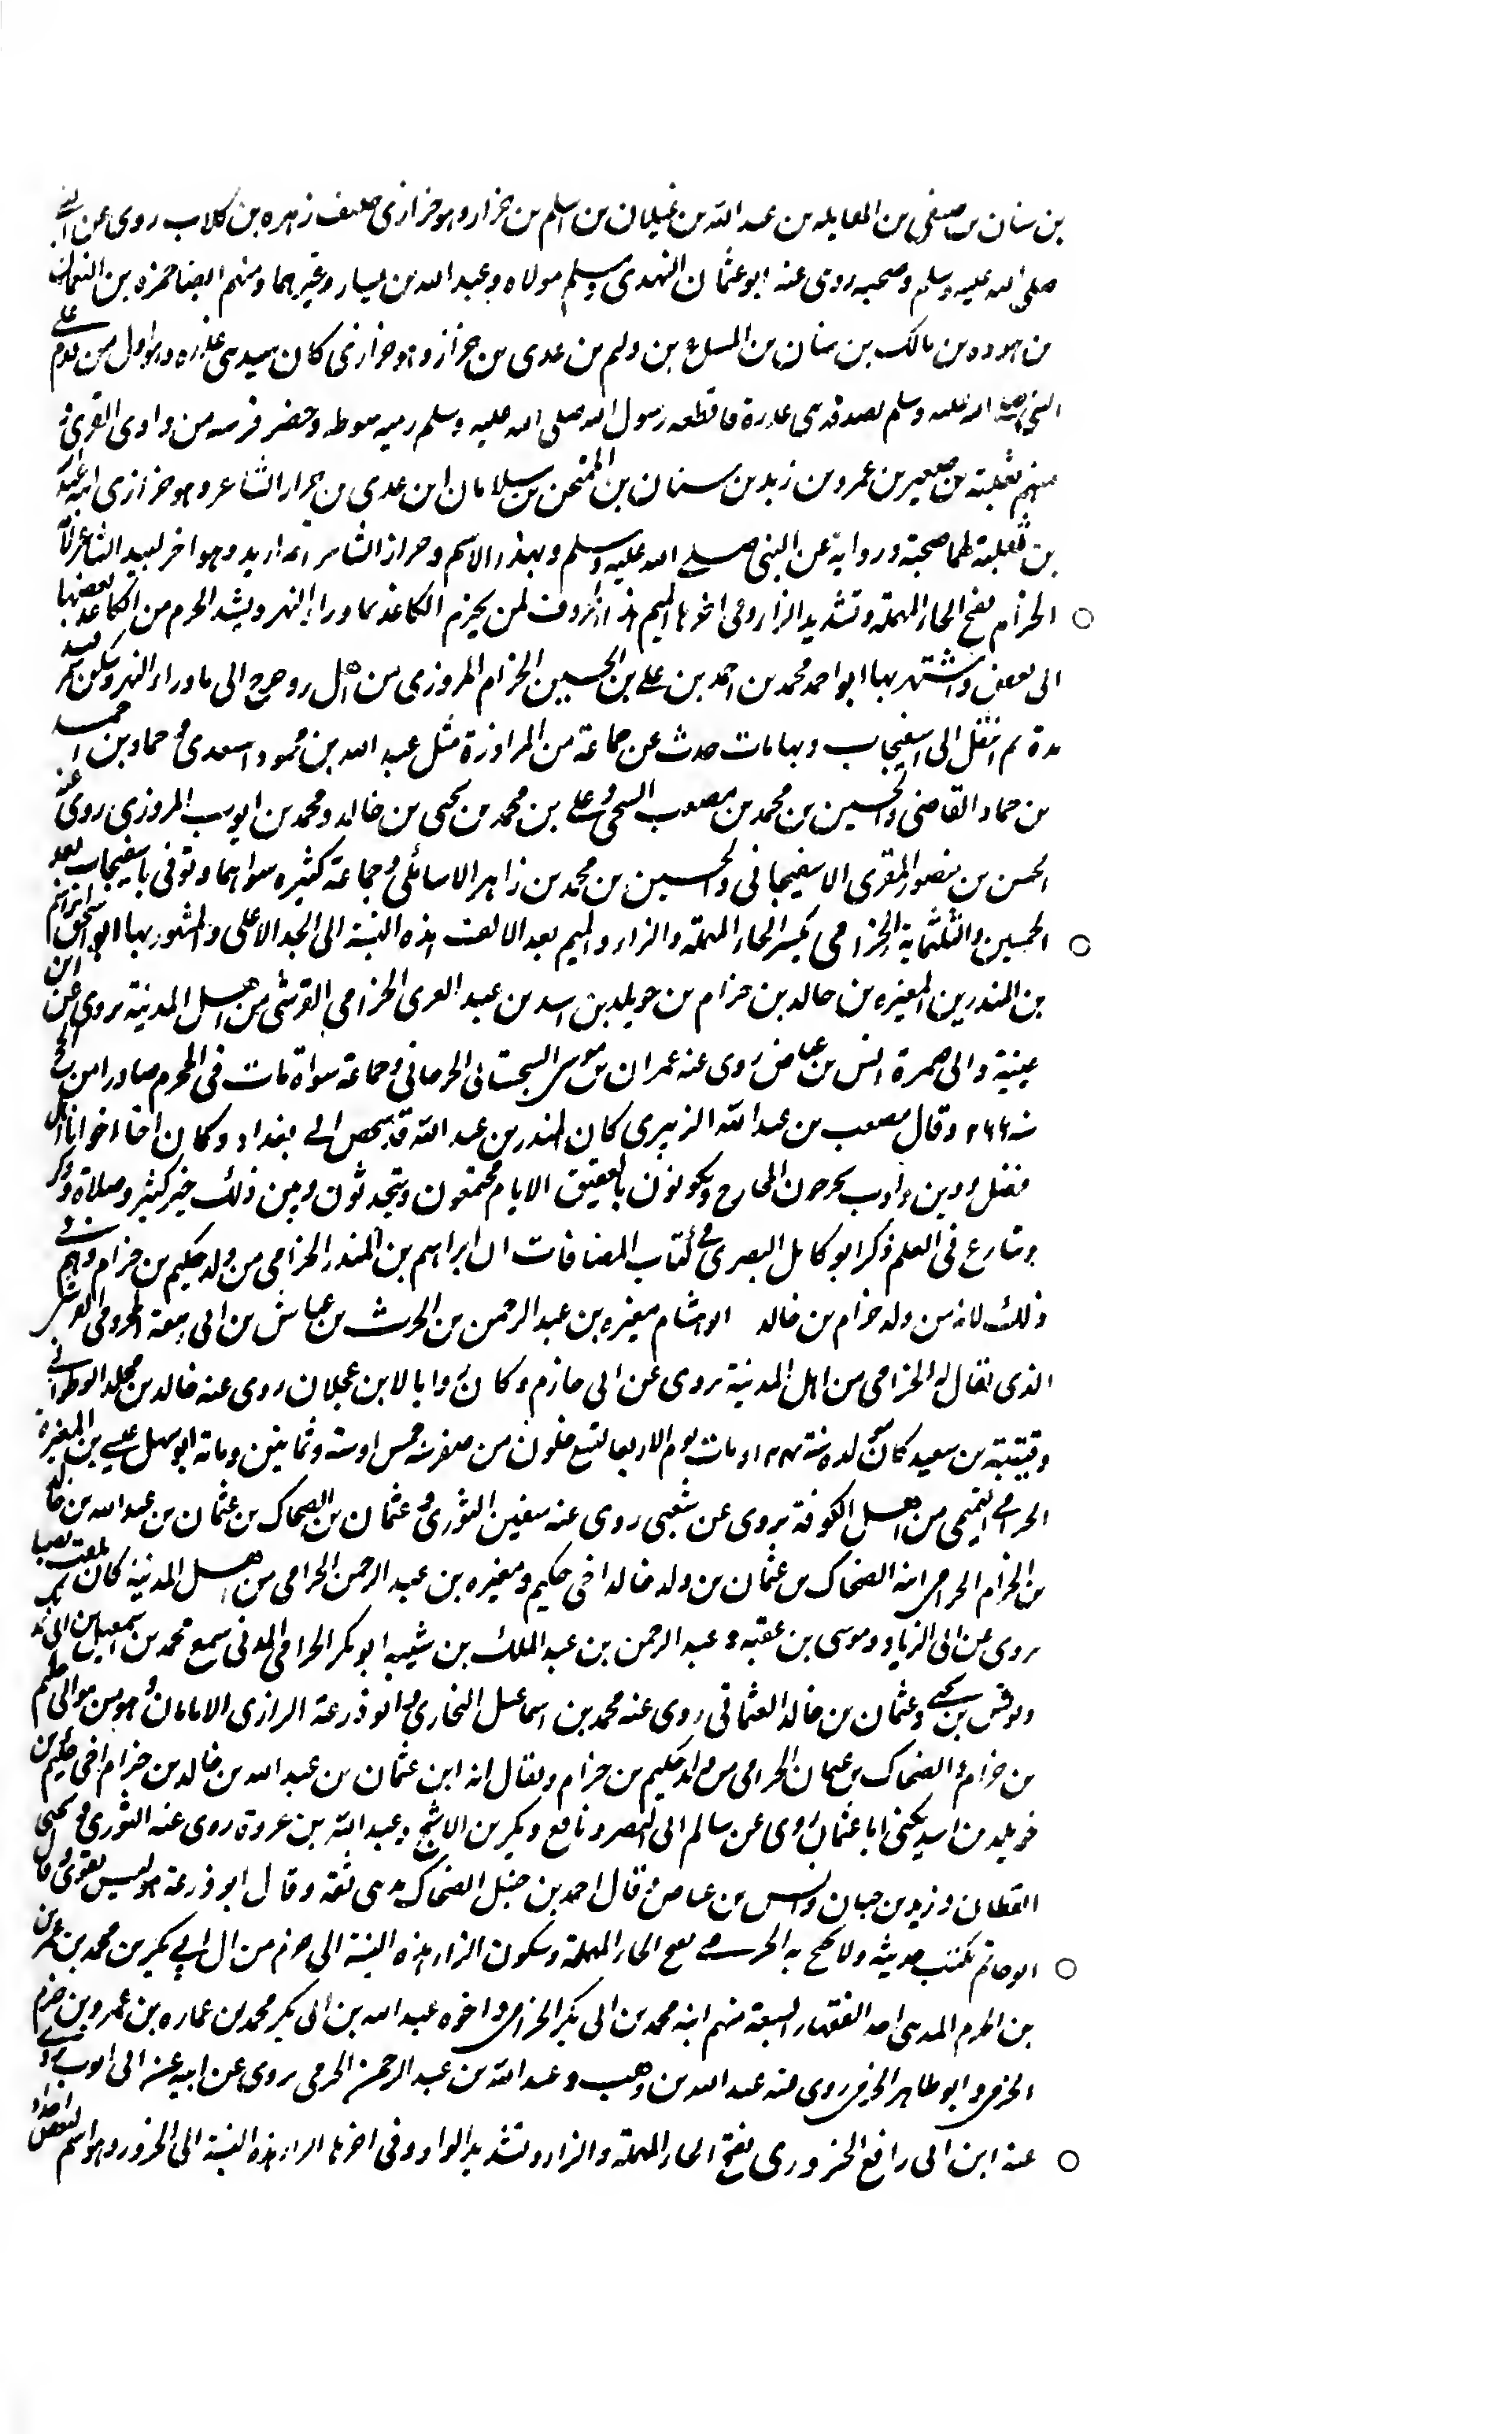 بن سنان بن صيفى بن العايله بن عبد الله بن غيلان بن اسلم بن حزار وهو حزازى حليف زهره بن كلاب روى عن النبى
صلى الله عليه وسلم وصحبه روى عنه ابو عثمان النهدى وسلم مولاه وعبد الله بن يسار وغيرهما ومنهم ايضا حمزه بن النعمان
بن هوده بن مالك بن سنان بن البياع بن دليم بن عدى بن حزاز وهو حزازى كان سيد بنى عذره وهو اول من قدم على
النبى صلى الله عليه وسلم بصدقه بنى عذرة فاقطعه رسول الله صلى الله عليه وسلم رميه سوطه وحضر فرسه من وادى القرى
منهم ثعلبة بن صعير بن عمرو بن زيد بن سنان بن المهتجن بن سلامان ابن عدى بن حزاز الشاعر وهو حزازى ابنه عبد الله
بن ثعلبة لهما صحبة ورواية عن النبى صلى الله عليه وسلم وبهذا الاسم وحزاز الشاعر انه اربد وهو اخر لبيد الشاعر لامه
الحزام بفتح الحاء المهملة وتشديد الزاء وفى اخرها الميم هذا المعروف لمن يحزم الكاغذ بما وراء النهر ويشد الحزم من الكاغذ بعضها
الى بعض واشتهر بها ابو احمد محمد بن احمد بن على بن الحسين الحزام المروزى من اهل مرو خرج الى ماوراء النهر وسكن سمرقند
مدة ثم انتقل الى اسفيجاب وبها مات حدث عن جماعة من المراوزة مثل عبد الله بن محمود السعدى وحماد بن احمد
بن حماد القاضى والحسين بن محمد بن مصعب السنجى وعلى بن محمد بن يحيى بن خالد ومحمد بن ايوب المروزى روى عنه
الحسن بن منصور المقرى الاسفيجابى والحسين بن محمد بن زاهر الاسبانيكثى وجماعة كثيره سواهما وتوفى باسفيجاب بعد
الخمسين والثلثماية الحزامى بكسر الحاء المهملة والزاء والميم بعد الالف هذه النسبة الى الجد الاعلى والمشهور بها ابو اسحق ابراهيم
بن المنذر بن المغيره بن خالد بن حزام بن خويلد بن اسد بن عبد العزى الحزامى القرشى من اهل المدينة يروى عن ابن
عيينة وابى ضمرة انس بن عياض روى عنه عمران بن موسى السجستانى الجرجانى وجماعة سواه مات فى المحرم صادرا من الحج
سنه ٢٦٦ وقال مصعب بن عبد الله الزبيرى كان المنذر بن عبد الله قد شخص الى بغداد وكان اخا اخوانا اهل
فضل ودين وادب يخرجون المخارج ويكونون بالعقيق الايام مجتمعون ويتحدثون وبين ذلك خير كثير وصلاة وذكر
وتنازع فى العلم ذكر ابو كامل البصرى فى كتاب المضافات ان ابراهيم بن المنذر الحزامى من ولد حكيم بن حزام وهم فى
ذلك لانه من ولد حزام بن خالد ابو هشام مغيره بن عبد الرحمن بن الحرث بن عياش بن ابى ربيعة المخزومى القرشى
الذى يقال له الحزامى من اهل المدينة يروى عن ابى حازم وكان راويا لابن عجلان روى عنه خالد بن مخلد القطوانى
وقتيبة بن سعيد كان مولده سنة ١٢٤ ومات يوم الاربعا لتسع خلون من صفر سنه خمس او ستة وثمانين وماية ابو سهل عيسى بن المغيرة
الحزامى التميمى من اهل الكوفة يروى عن شعبى روى عنه سفين الثورى وعثمان بن الضحاك بن عثمان بن عبد الله بن خالد
بن الحزام الحزامى ابنه الضحاك بن عثمان من ولد خالد اخى حكيم ومغيره بن عبد الرحمن الحزامى من اهل المدينة كان يلقب بقصى
يروى عن ابى الزناد وموسى بن عقبه وعبد الرحمن بن عبد الملك بن شيبه ابو بكر الحزامى المدنى سمع محمد بن اسمعيل بن ابى فديك
ويونس بن يحيى وعثمان بن خالد العثمانى روى عنه محمد بن اسماعيل البخارى وابو ذرعة الرازى الامامان وهو من موالى حكيم
بن حزام والضحاك بن عثمان الحزامى من ولد حكيم بن حزام ويقال انه ابن عثمان بن عبد الله بن خالد بن حزام اخى حكيم بن
خويلد بن اسد يكنى ابا عثمان روى عن سالم ابى النصر ونافع وبكير بن الاشج وعبد الله بن عروة روى عنه الثورى ويحيى
القطان وزيد بن حبان وانس بن عياض وقال احمد بن حنبل الضحاك مدينى ثقة وقال ابو ذرعة هو ليس بقوى وقال
ابو حاتم يكتب حديثه ولا يحتج به الحزمى بفتح الحاء المهملة وسكون الزاء هذه النسبة الى حزم من ال ابى بكر بن محمد بن عمرو بن
بن الحزم المدينى احد الفقهاء السبعة منهم ابنه محمد بن ابى بكر الحزمى واخوه عبد الله بن ابى بكر محمد بن عماره بن عمرو بن حزم
الحزمى وابو طاهر الحزمى روى عنه عبد الله بن وهب وعبد الله بن عبد الرحمن الحزمى يروى عن ابيه عن ابى ايوب روى
عنه ابن ابى رافع الحزورى بفتح الحاء المهملة والزاء وتشديد الواو وفى اخرها الراء هذه النسبة الى الحزور وهو اسم لبعض اجداد